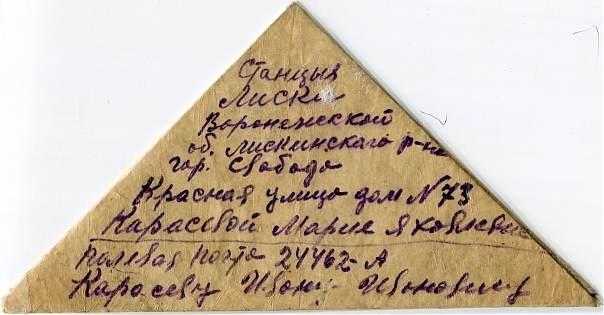 Станцыя
Лиски
Воронежской
об. Лискинскаго р-на
гор. Свобода
Красная улицо дом N 73
Карасевой Марие Яковлевне
Полевая Почта 24462-А
Карасеву Ивону Ивоновичу